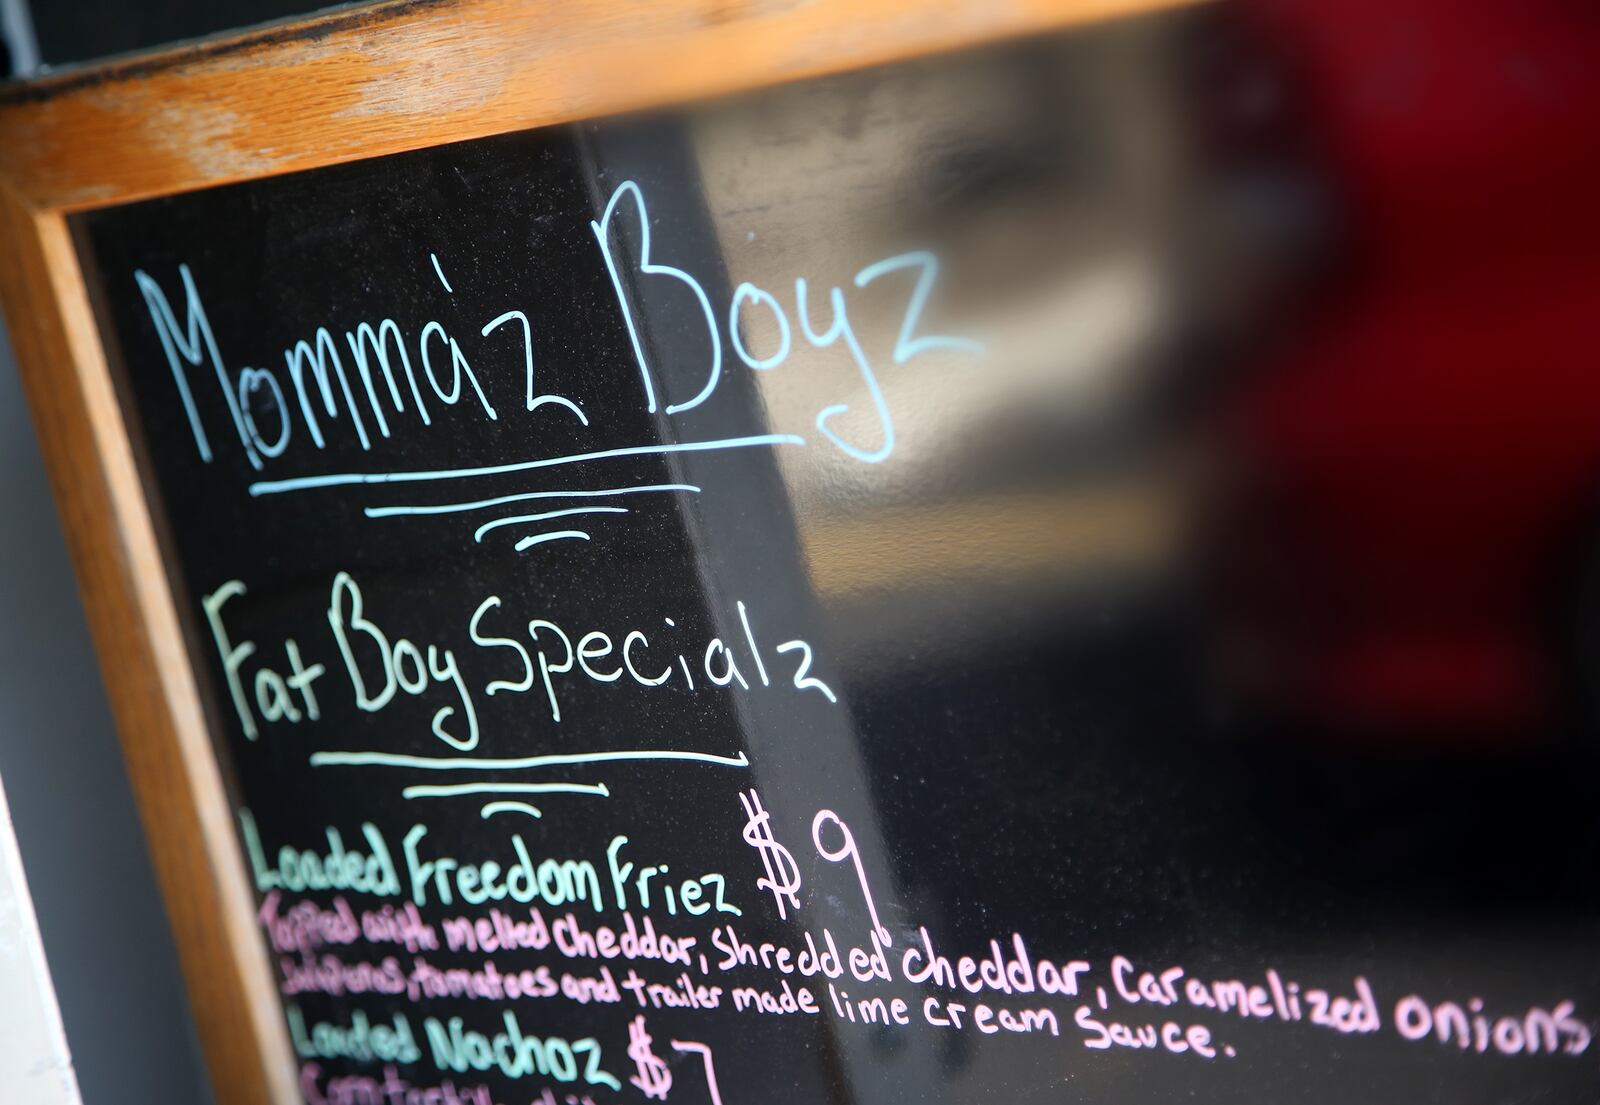 Momma'z Boyz
Fat Boy Specialz
Loaded Freedom Friez $9
Topped with melted cheddar, shredded cheddar, caramelized onions
Jalapenos, tomatoes and trailer made lime cream sauce.
Loaded Nachoz $7
Corn